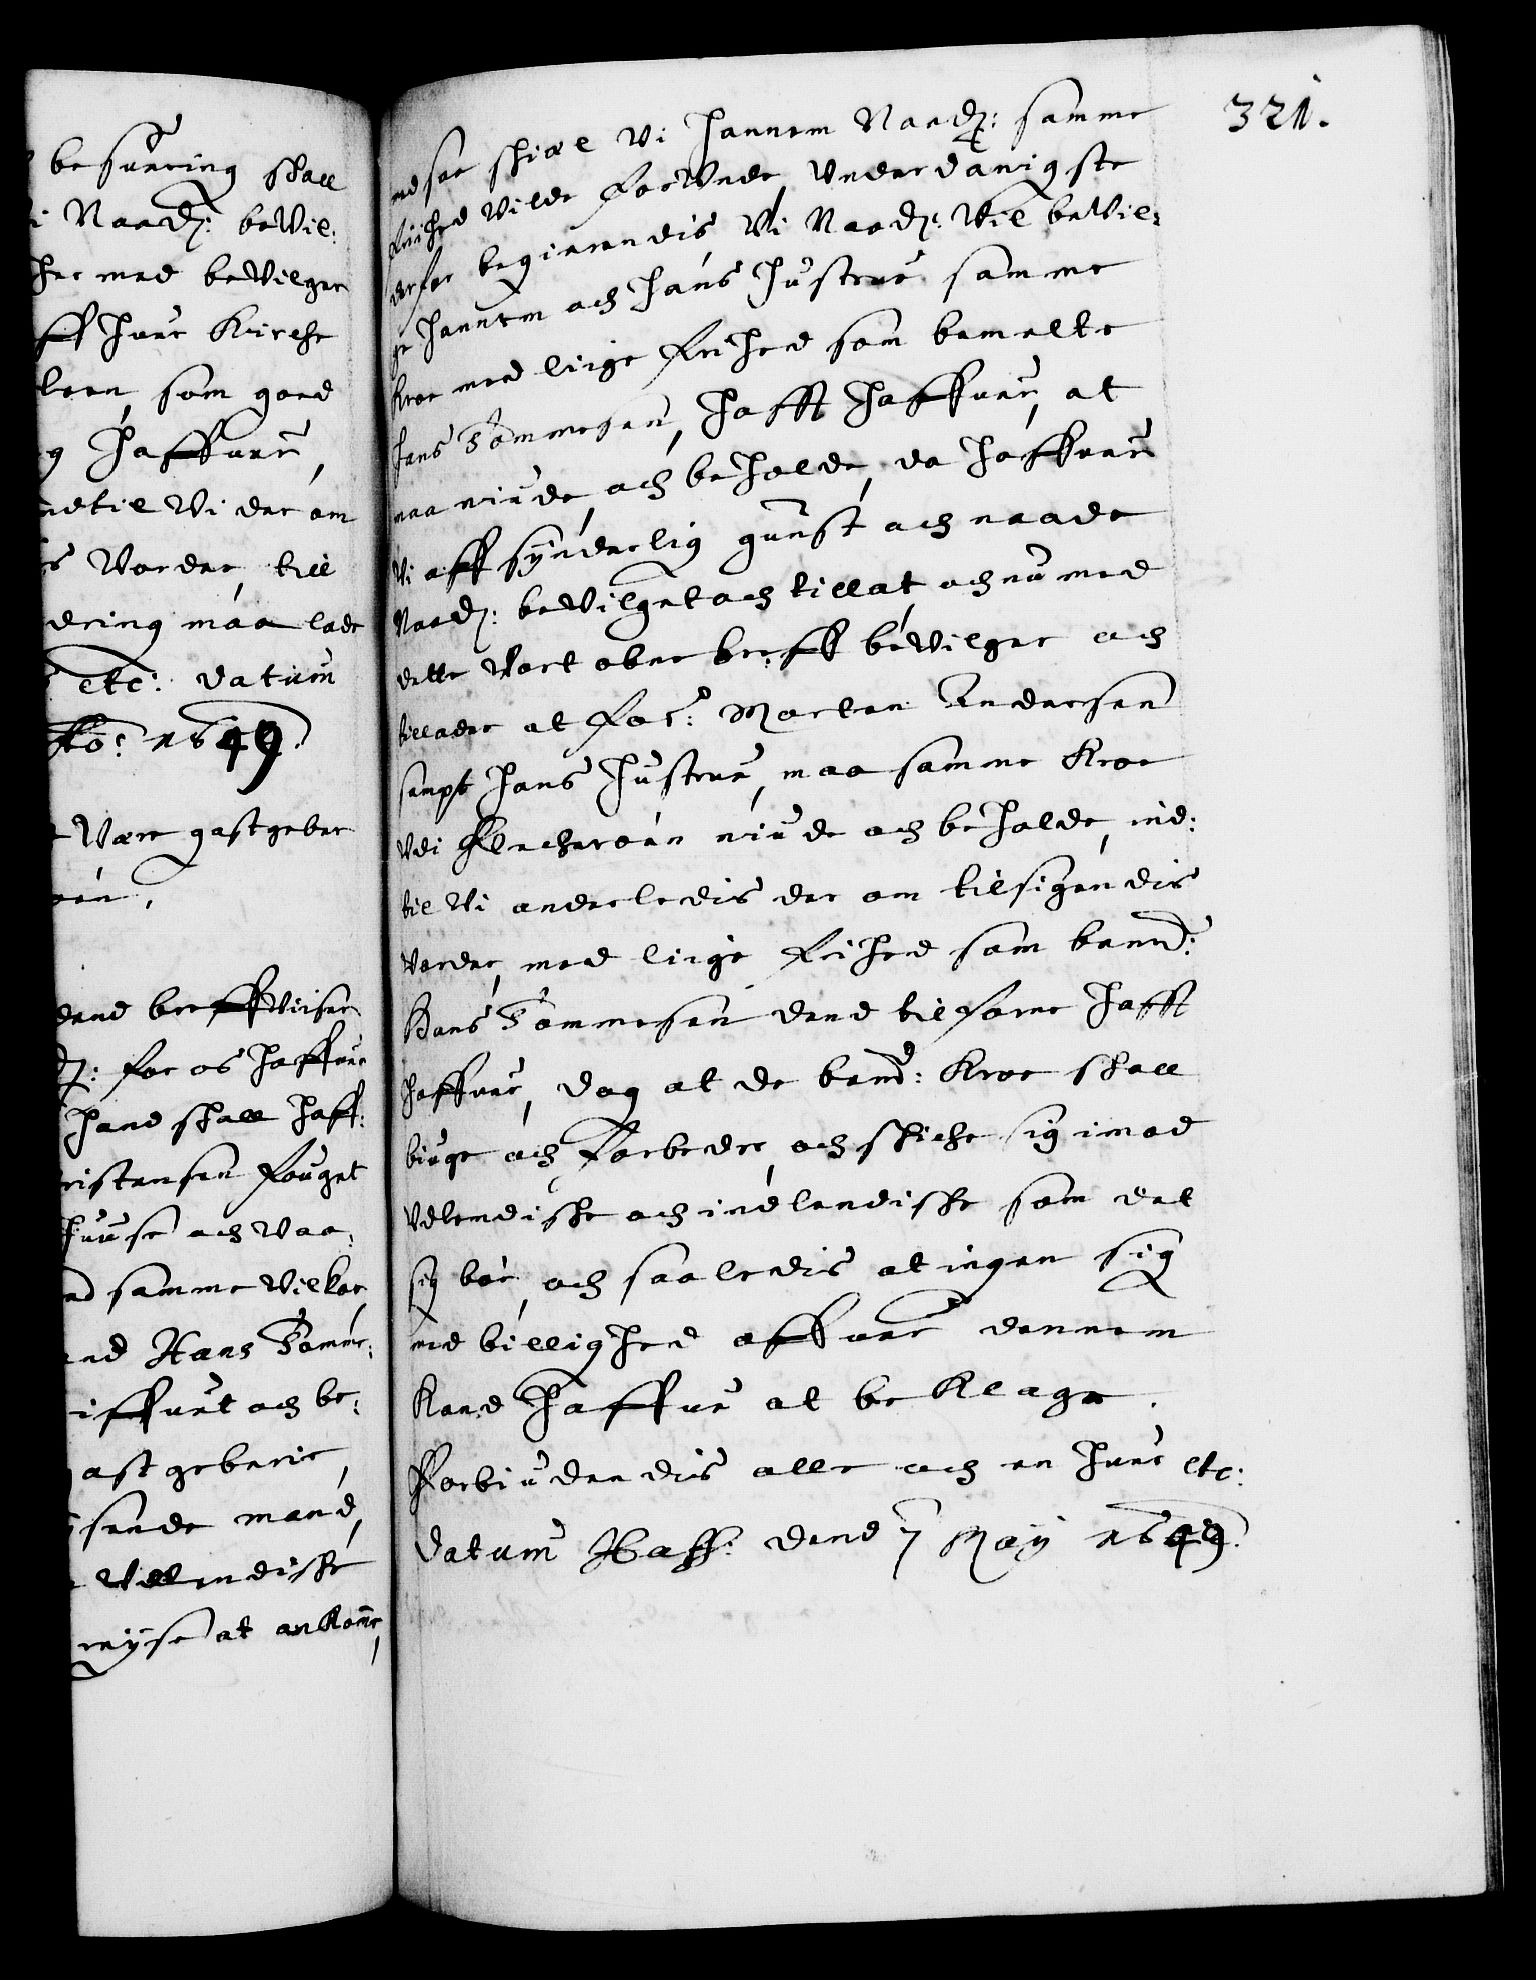 besuering shall
i Naadg: bevil:
her med bevilger
ff huer Kirche
leen, som goed
g haffuer,
ndtil Vi der om
s Vorder, till
dring maa lade
etc: datum
ffo: 1649.
Være gastgeber
øen,
dend breffviser
dg: for os haffuer
hand skall haff:
ristensen Fouget
huuse och vaa:
nd samme vilkor
end Hans Tomme:
iffuet och be:
gastgeberie,
sende mand,
Vdlendiske
reyse at ankome,
321.
med saa skiæl Vi hannem Naadg: samme
friihed vilde forVnde, Vnderdanigste
derfor begierendis Vi Naadg: Vil beVil:
ge hannem och hans hustrue samme
Kroe med liige friihed som bemelte
Hans Tommesen, hafft haffuer, at
maa niude och beholde, da haffuer
Vi aff synderlig gunst och naade
Naadg: beVilget och tillat och nu med
dette Vort obne breff beVilger och
tillader at for: Morten Andersen
sampt hans hustrue, maa samme Kroe
Vdi Flecherøen niude och beholde ind:
til Vi anderledis der om tilsigendis
Vorder, med liige friihed som bemd:
Hans Tommesen dend tilforne hafft
haffuer, dog at de bemd: Kroe skall
biuge och Forbedre och skiche sig imod
Vdlendiske och indlendiske som det
sig bør, och saaledis at ingen sig
med billighed offuer dennem
Kand haffue at beklage.
Forbiudendis alle och en huer etc:
Datum Haff: dend 7 May 1649.